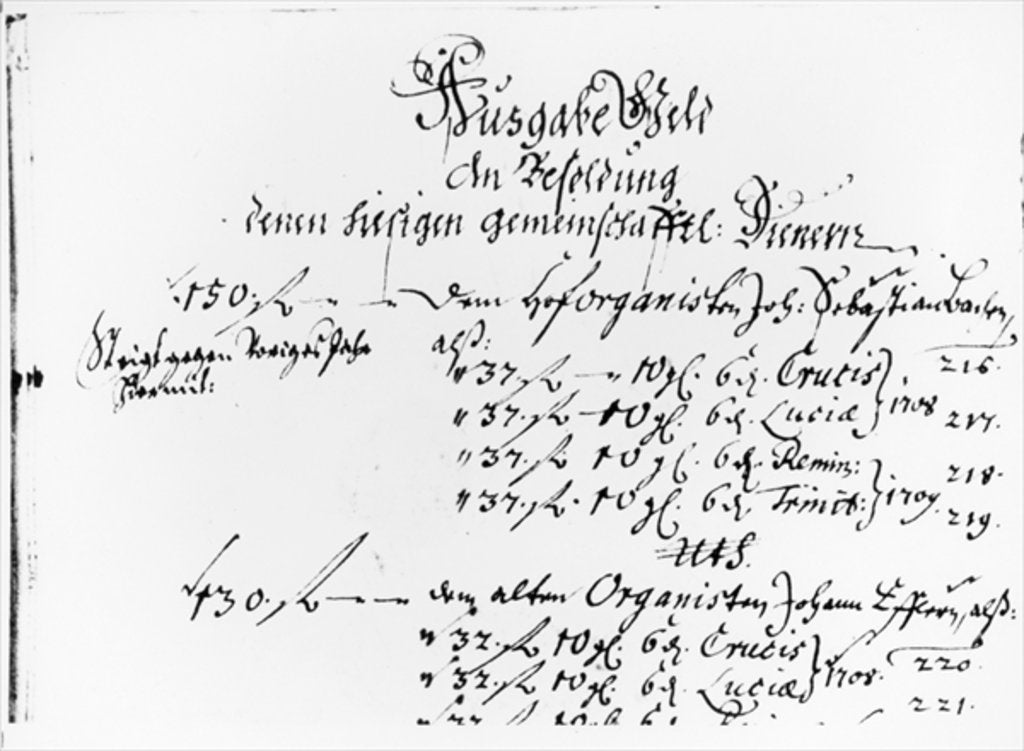 Ausgabe Geld
An Besoldung
denen hiesigen gemeinschafftl: Dienern
150. fl — — Dem Hoforganisten Joh: Sebastian Bachen,
Steigt gegen voriges Jahr
hiermit:
alß:
" 37. fl — 10 gl. 6 d. Crucis } 216.
" 37. fl — 10 gl. 6 d. Luciæ } 1708 217.
" 37. fl. 10 gl. 6 d. Remin: 218.
" 37. fl. 10 gl. 6 d. Trinit: } 1709. 219.
Uts.
130. fl — — dem alten Organisten Johann Efflern, alß:
" 32. fl 10 gl. 6 d. Crucis } 220.
" 32. fl 10 gl. 6 d. Luciæ } 1708. 221.